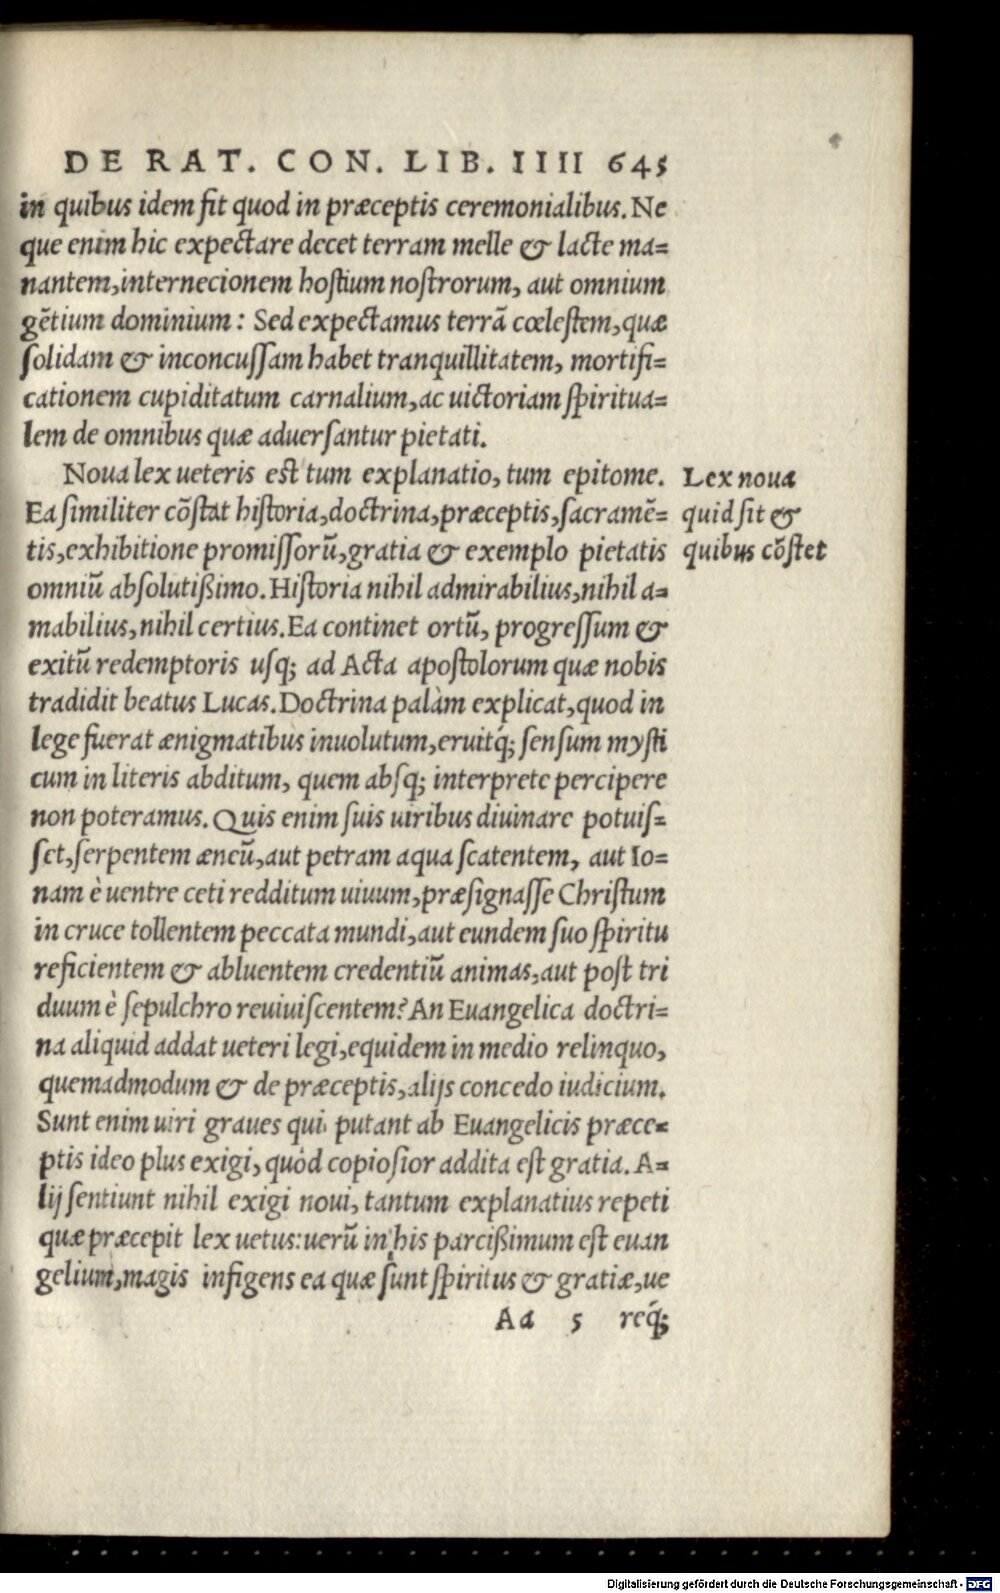 DE RAT. CON. LIB. IIII 645
in quibus idem fit quod in præceptis ceremonialibus. Ne
que enim hic expectare decet terram melle & lacte ma=
nantem, internecionem hostium nostrorum, aut omnium
gẽtium dominium: Sed expectamus terrã cœlestem, quæ
solidam & inconcussam habet tranquillitatem, mortifi=
cationem cupiditatum carnalium, ac uictoriam spiritua=
lem de omnibus quæ aduersantur pietati.
Noua lex ueteris est tum explanatio, tum epitome.
Ea similiter cõstat historia, doctrina, præceptis, sacramẽ=
tis, exhibitione promissorũ, gratia & exemplo pietatis
omniũ absolutißimo. Historia nihil admirabilius, nihil a=
mabilius, nihil certius. Ea continet ortũ, progressum &
exitũ redemptoris usq; ad Acta apostolorum quæ nobis
tradidit beatus Lucas. Doctrina palàm explicat, quod in
lege fuerat ænigmatibus inuolutum, eruitq́; sensum mysti
cum in literis abditum, quem absq; interprete percipere
non poteramus. Quis enim suis uiribus diuinare potuis=
set, serpentem æneũ, aut petram aqua scatentem, aut Io=
nam è uentre ceti redditum uiuum, præsignasse Christum
in cruce tollentem peccata mundi, aut eundem suo spiritu
reficientem & abluentem credentiũ animas, aut post tri
duum è sepulchro reuiuiscentem? An Euangelica doctri=
na aliquid addat ueteri legi, equidem in medio relinquo,
quemadmodum & de præceptis, alijs concedo iudicium.
Sunt enim uiri graues qui putant ab Euangelicis præce=
ptis ideo plus exigi, quòd copiosior addita est gratia. A=
lij sentiunt nihil exigi noui, tantum explanatius repeti
quæ præcepit lex uetus: uerũ in his parcißimum est euan
gelium, magis infigens ea quæ sunt spiritus & gratiæ, ue
Aa 5 req́;
Lex noua
quid sit &
quibus cõstet
Digitalisierung gefördert durch die Deutsche Forschungsgemeinschaft - DFG